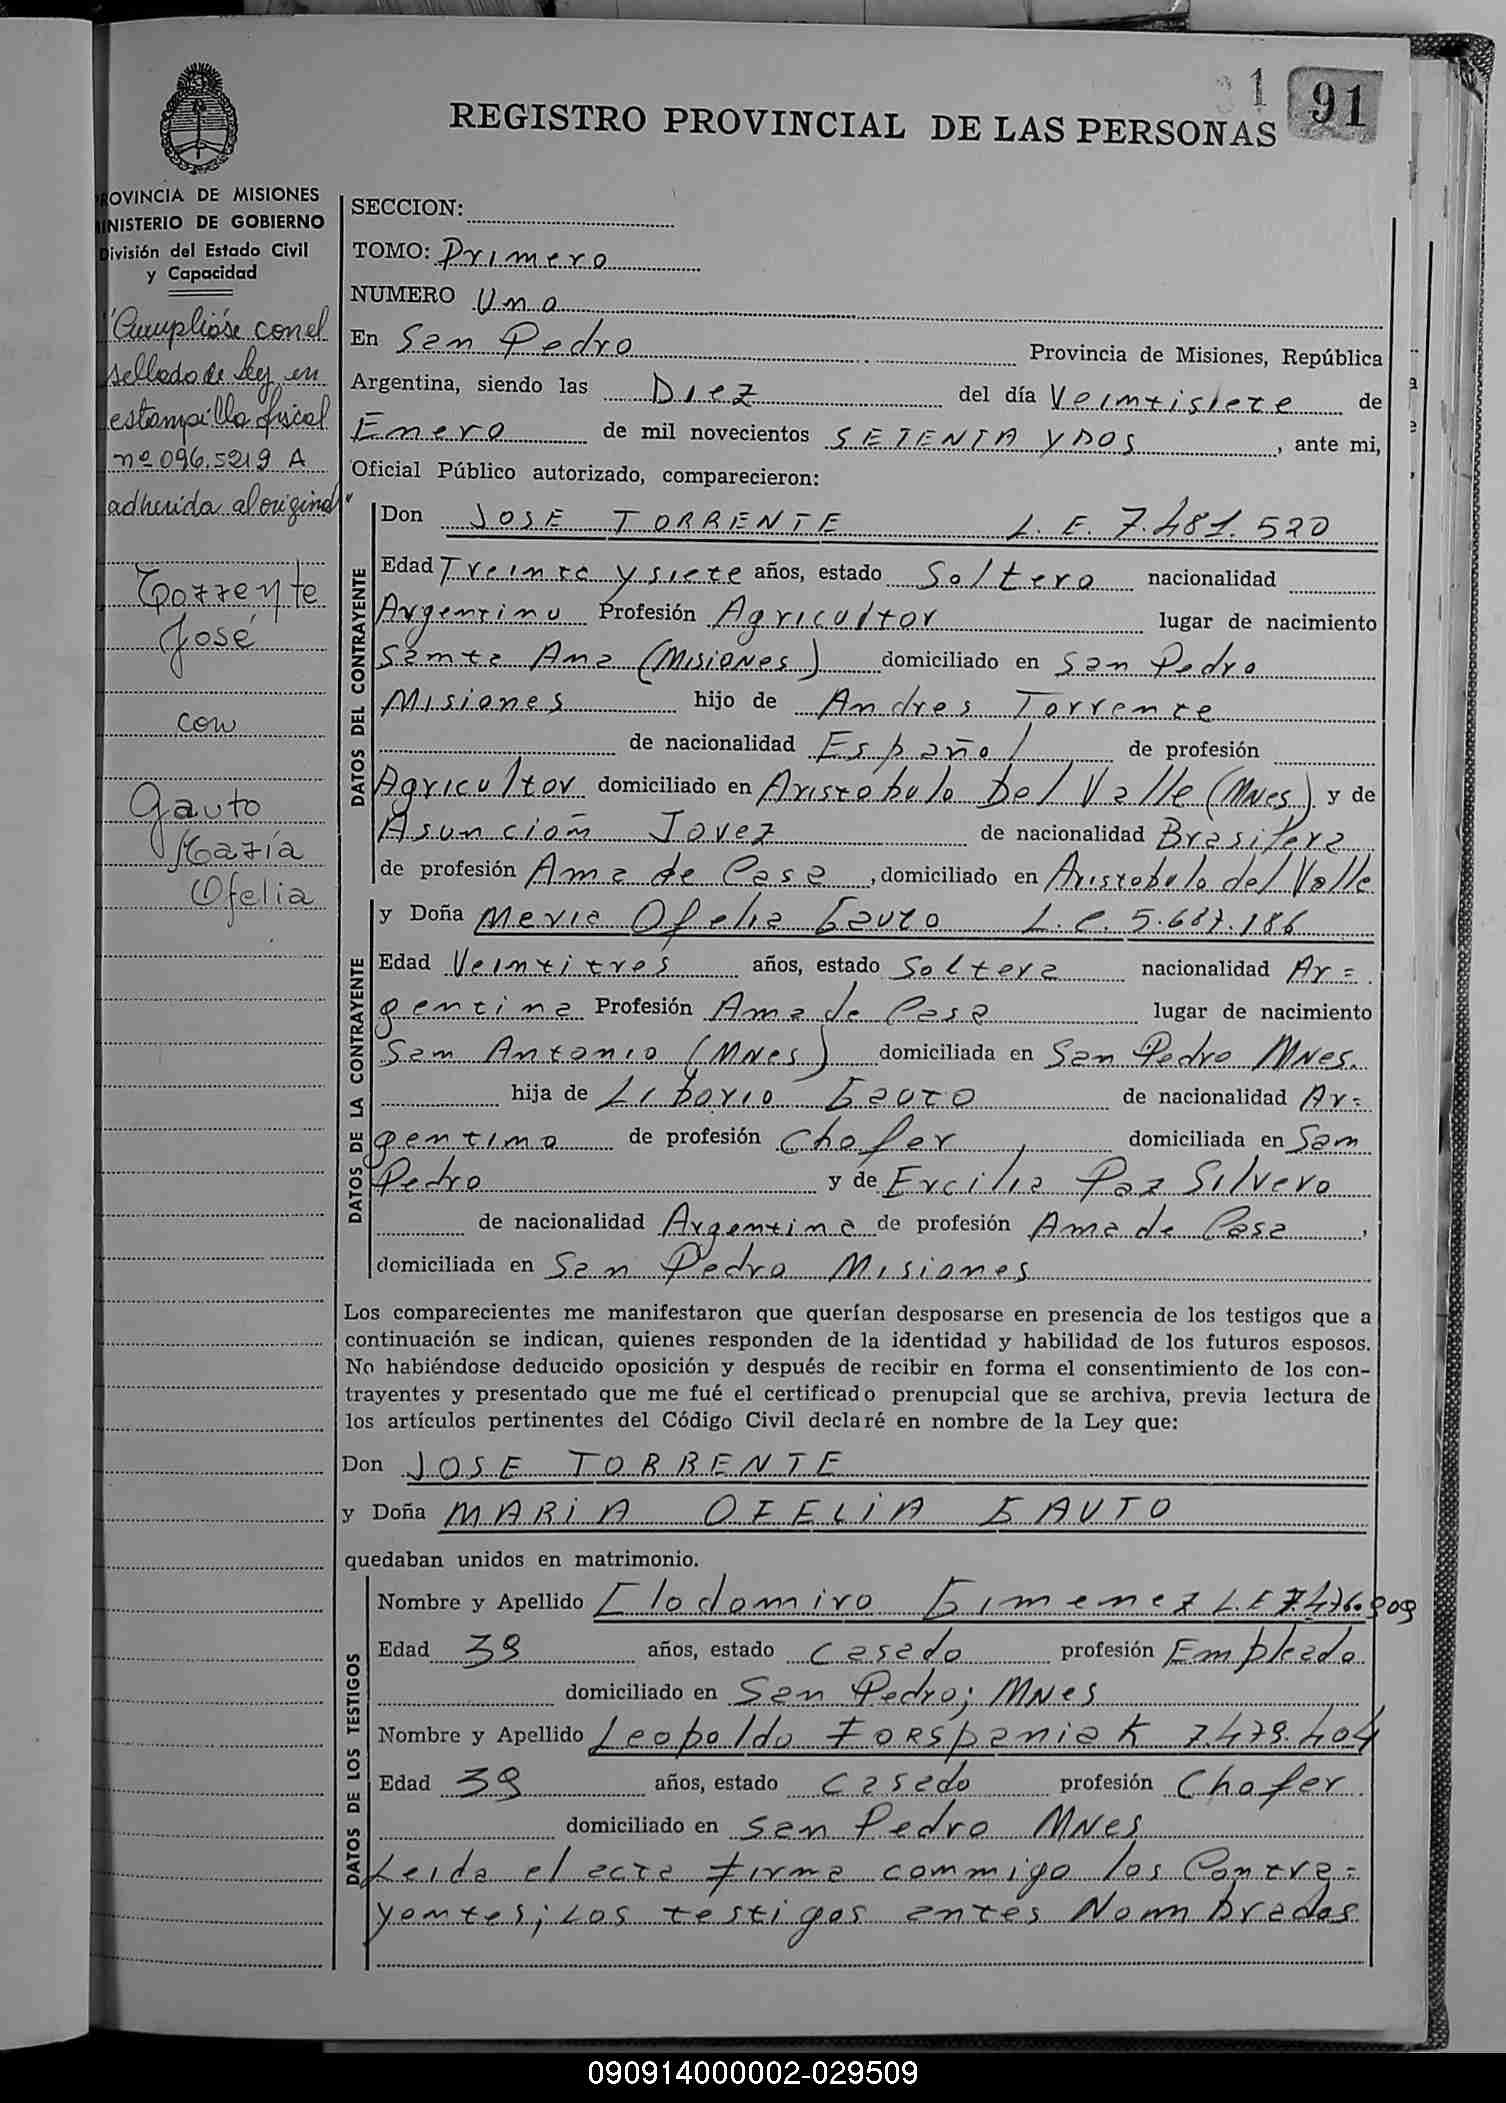 1 91
REGISTRO PROVINCIAL DE LAS PERSONAS
PROVINCIA DE MISIONES
MINISTERIO DE GOBIERNO
División del Estado Civil
y Capacidad
"Cumplióse con el
sellado de ley en
estampilla fiscal
nº 096.5219 A
adherida al original"
Torrente
José
con
Gauto
María
Ofelia
SECCION:
TOMO: Primero
NUMERO Uno
En San Pedro Provincia de Misiones, República
Argentina, siendo las Diez del día Veintisiete de
Enero de mil novecientos SETENTA Y DOS, ante mi,
Oficial Público autorizado, comparecieron:
DATOS DEL CONTRAYENTE
Don JOSE TORRENTE L. E. 7.481.520
Edad Treinta y siete años, estado Soltero nacionalidad
Argentino Profesión Agricultor lugar de nacimiento
Santa Ana (Misiones) domiciliado en San Pedro
Misiones hijo de Andres Torrente
de nacionalidad Español de profesión
Agricultor domiciliado en Aristobulo Del Valle (Mnes) y de
Asunción Jovez de nacionalidad Brasilera
de profesión Ama de Casa, domiciliado en Aristobulo del Valle
DATOS DE LA CONTRAYENTE
y Doña Maria Ofelia Gauto L. C. 5.687.186
Edad Veintitres años, estado Soltera nacionalidad Ar=
gentina Profesión Ama de Casa lugar de nacimiento
San Antonio (Mnes) domiciliada en San Pedro Mnes.
hija de Liborio Gauto de nacionalidad Ar=
gentino de profesión Chofer, domiciliada en San
Pedro y de Ercilia Paz Silvero
de nacionalidad Argentina de profesión Ama de Casa,
domiciliada en San Pedro Misiones
Los comparecientes me manifestaron que querían desposarse en presencia de los testigos que a
continuación se indican, quienes responden de la identidad y habilidad de los futuros esposos.
No habiéndose deducido oposición y después de recibir en forma el consentimiento de los con-
trayentes y presentado que me fué el certificado prenupcial que se archiva, previa lectura de
los artículos pertinentes del Código Civil declaré en nombre de la Ley que:
Don JOSE TORRENTE
y Doña MARIA OFELIA GAUTO
quedaban unidos en matrimonio.
DATOS DE LOS TESTIGOS
Nombre y Apellido Clodomiro Gimenez L.E 7.476.909
Edad 39 años, estado Casado profesión Empleado
domiciliado en San Pedro; Mnes
Nombre y Apellido Leopoldo Forspaniak 7.479.404
Edad 39 años, estado Casado profesión Chofer
domiciliado en San Pedro Mnes
Leida el acta firma commigo los Contra=
yentes; Los testigos antes Nombrados
090914000002-029509